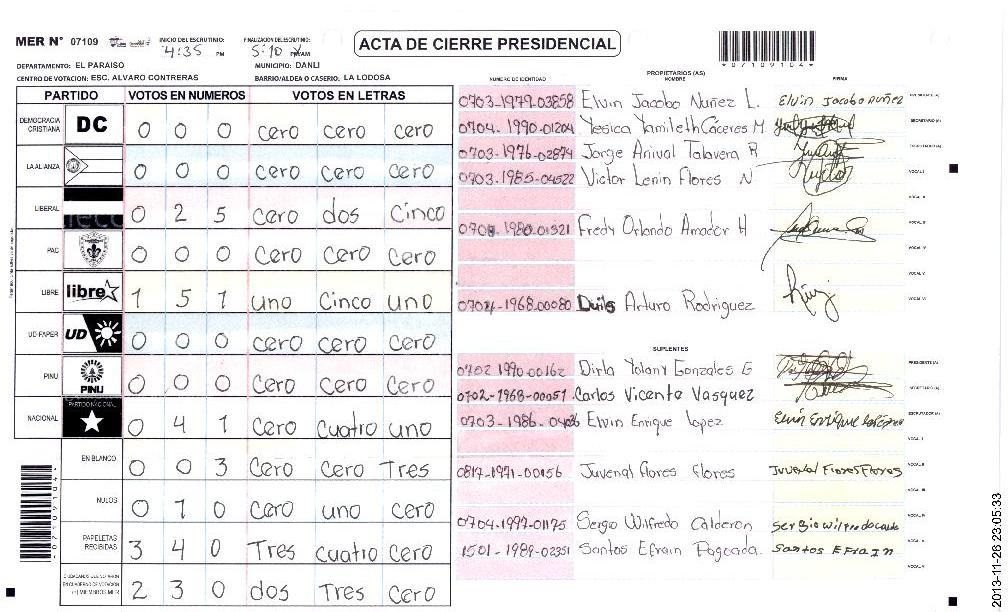 MER Nº 07109
INICIO DEL ESCRUTINIO: 4:35 PM
FINALIZACION DEL ESCRUTINIO: 5:10
ACTA DE CIERRE PRESIDENCIAL
*07109104*
DEPARTAMENTO: EL PARAISO MUNICIPIO: DANLI
CENTRO DE VOTACION: ESC. ALVARO CONTRERAS BARRIO/ALDEA O CASERIO: LA LODOSA
PARTIDO VOTOS EN NUMEROS VOTOS EN LETRAS
DEMOCRACIA CRISTIANA DC 0 0 0 cero cero cero
LA ALIANZA 0 0 0 cero cero cero
LIBERAL 0 2 5 cero dos Cinco
PAC 0 0 0 Cero Cero Cero
LIBRE libre 1 5 1 uno Cinco uno
UD-FAPER UD 0 0 0 cero cero cero
PINU PINU 0 0 0 Cero Cero Cero
NACIONAL PARTIDO NACIONAL 0 4 1 Cero Cuatro uno
EN BLANCO 0 0 3 Cero Cero Tres
NULOS 0 1 0 Cero uno cero
PAPELETAS RECIBIDAS 3 4 0 Tres cuatro cero
CIUDADANOS QUE VOTARON EN CUADERNO DE VOTACION (+) MIEMBROS MER 2 3 0 dos Tres cero
*07109104*
PROPIETARIOS (AS)
NUMERO DE IDENTIDAD NOMBRE FIRMA
0703-1979-03858 Elvin Jacobo Nuñez L. Elvin Jacobo Nuñez PRESIDENTE (A)
0704-1990-01204 Yesica Yamileth Cáceres M SECRETARIO (A)
0703-1976-02874 Jorge Anival Talavera R ESCRUTADOR (A)
0703-1985-04522 Victor Lenin Flores N VOCAL I
VOCAL II
1980-01321 Fredy Orlando Amador H VOCAL III
VOCAL IV
VOCAL V
0704-1968-00080 Luis Arturo Rodriguez VOCAL VI
SUPLENTES
0702 1990-00162 Dirla Yolany Gonzales G PRESIDENTE (A)
0702-1968-00051 Carlos Vicente Vasquez SECRETARIO (A)
0703-1986- Elvin Enrique Lopez Elvin Enrique ESCRUTADOR (A)
VOCAL I
0817-1971-00156 Juvenal flores Flores Juvenal Flores Flores VOCAL II
VOCAL III
0704-1997-01175 Sergio Wilfredo Calderon Sergio Wilfredo VOCAL IV
1501-1989-02351 Santos Efrain Pogoada. Santos EFRAIN VOCAL V
2013-11-26 23:05:33